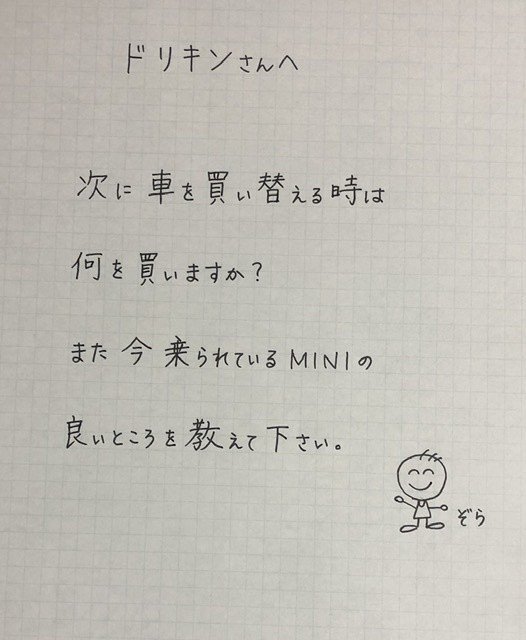 ドリキンさんへ
次に車を買い替える時は
何を買いますか?
また今乗られているMINIの
良いところを教えて下さい。
ぞら